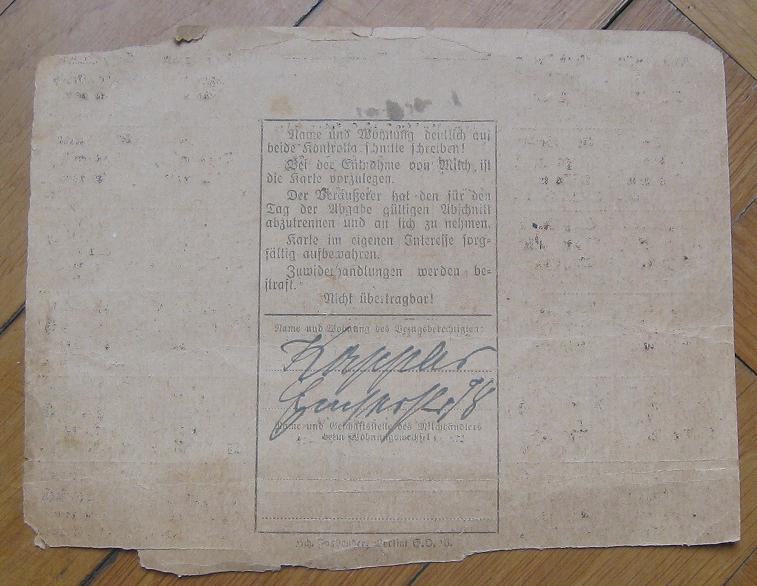 Name und Wohnung deutlich auf
beide Kontrollabschnitte schreiben!
Bei der Entnahme von Milch ist
die Karte vorzulegen.
Der Veräußerer hat den für den
Tag der Abgabe gültigen Abschnitt
abzutrennen und an sich zu nehmen.
Karte im eigenen Interesse sorg-
fältig aufbewahren.
Zuwiderhandlungen werden be-
straft.
Nicht übertragbar!
Name und Wohnung des Bezugsberechtigten:
Kappler
Name und Geschäftsstelle des Milchhändlers
beim Wohnungswechsel
Berlin S.O. 16.